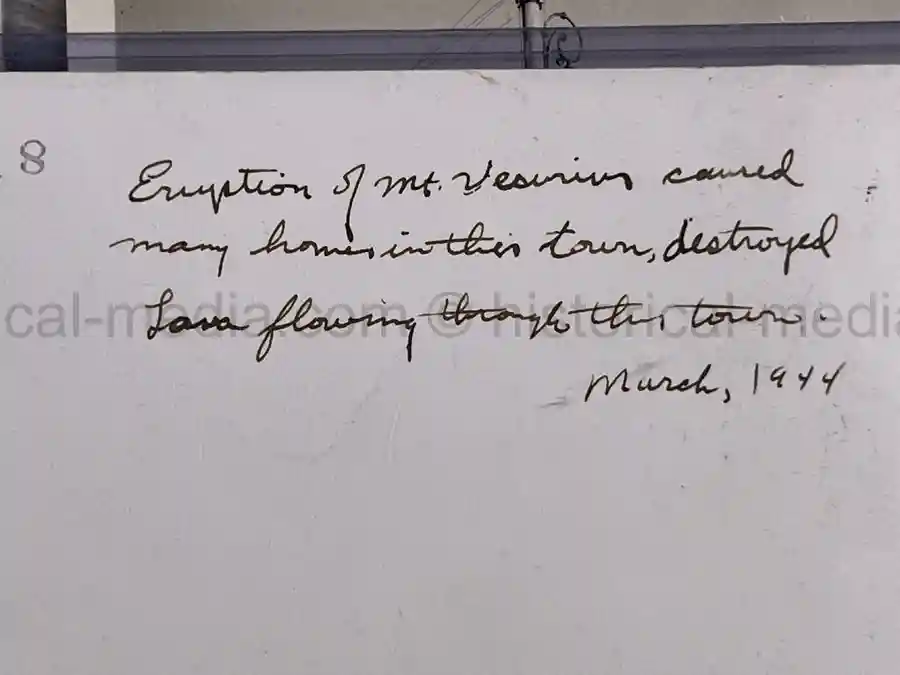 8
Eruption of Mt. Vesuvius caused
many homes in this town, destroyed
cal-media.com © historical-media
Lava flowing through this town.
March, 1944